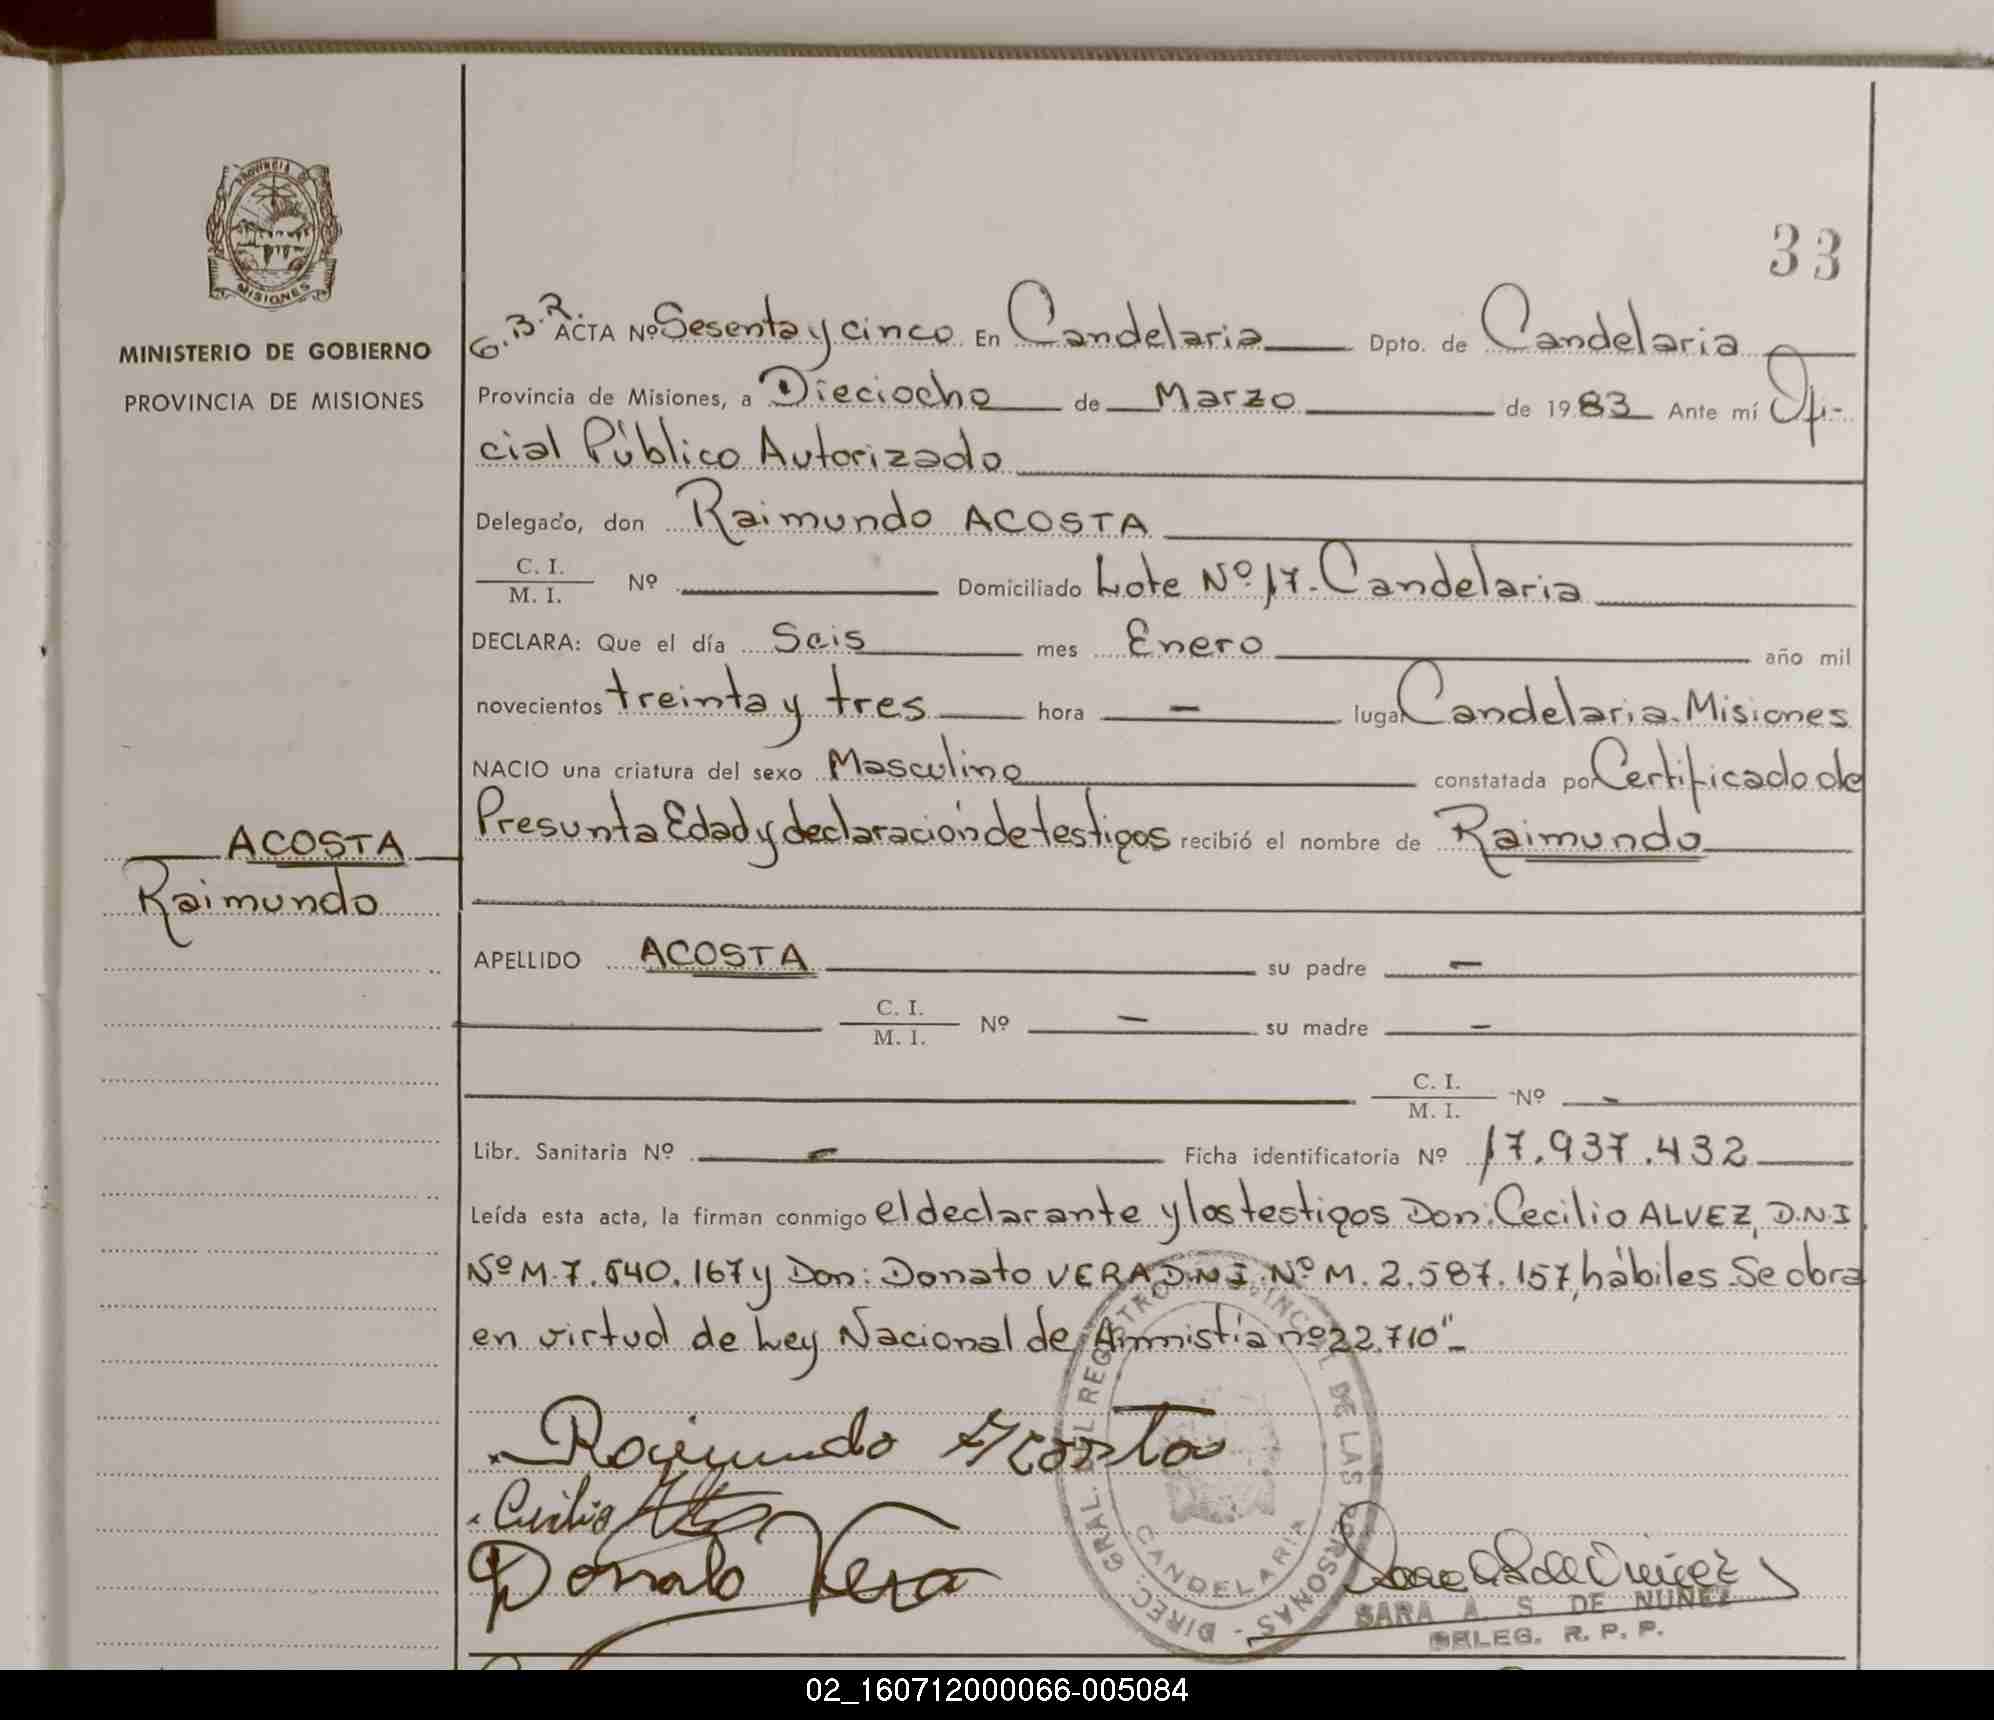 PROVINCIA DE
MISIONES
MINISTERIO DE GOBIERNO
PROVINCIA DE MISIONES
33
G.B.R. ACTA Nº Sesenta y cinco En Candelaria Dpto. de Candelaria
Provincia de Misiones, a Dieciocho de Marzo de 1983 Ante mí Ofi-
cial Público Autorizado
Delegado, don Raimundo ACOSTA
C. I.
M. I. Nº Domiciliado Lote Nº 17. Candelaria
DECLARA: Que el día Seis mes Enero año mil
novecientos treinta y tres hora — lugar Candelaria. Misiones
NACIO una criatura del sexo Masculino constatada por Certificado de
Presunta Edad y declaración de testigos recibió el nombre de Raimundo
ACOSTA
Raimundo
APELLIDO ACOSTA su padre —
C. I.
M. I. Nº — su madre —
C. I.
M. I. Nº -
Libr. Sanitaria Nº — Ficha identificatoria Nº 17.937.432
Leída esta acta, la firman conmigo el declarante y los testigos Don: Cecilio ALVEZ, D.N.I
Nº M. 7.540.167 y Don: Donato VERA D.N.I. Nº M. 2.587.157, hábiles. Se obra
en virtud de Ley Nacional de Amnistía nº 22.710"-
Raimundo Acosta
Cecilio
Donato Vera
DIREC. GRAL. DEL REGISTRO PROVINCIAL DE LAS PERSONAS -
CANDELARIA
SARA A. S. DE NUÑEZ
DELEG. R. P. P.
02_160712000066-005084